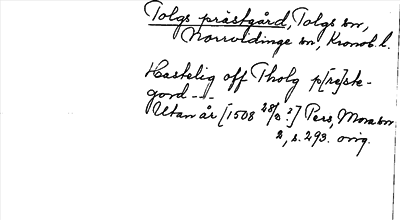 Tolgs prästgård, Tolgs sn,
Norrvidinge sn, Kronob. l.
Hastelig off Tholg p[re]ste-
gord ---
Utan år [1508 28/8 ?] Pers, Mora sn
2, s. 293. orig.